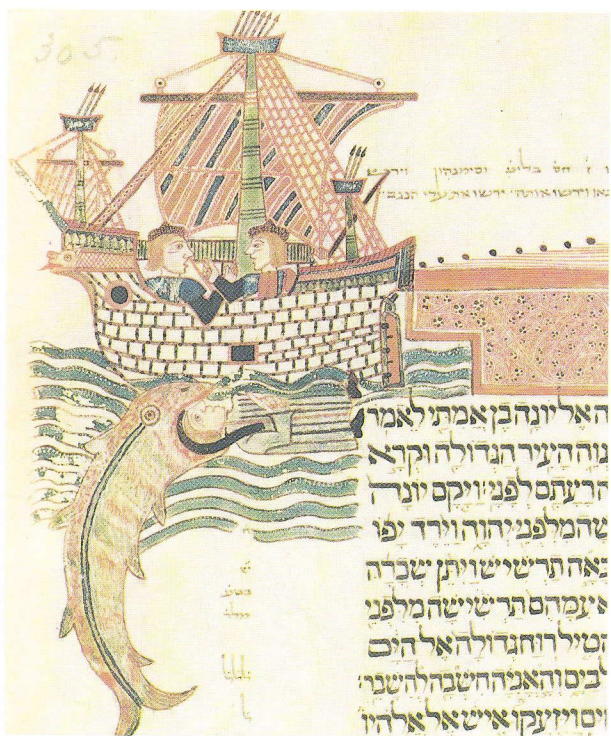 305
ירשו את ערי הנגב
ה אל יונה בן אמתי לאמר
נוה העיר הגדולה וקרא
רעתם לפני ויקם יונה
שה מלפני יהוה וירד יפו
באה תרשיש ויתן שכרה
עמהם תרשישה מלפני
הטיל רוח גדולה אל הים
ל בים והאניה חשבה להשבר
חים ויזעקו איש אל אלהיו